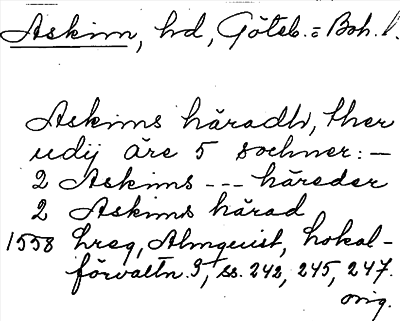 Askim, hd, Göteb. = Boh. l.
Askims häradh, ther
udij äre 5 sochner: —
2 Askims --- häreder
2 Askims härad
1558 hreg, Almquist, Lokal-
förvaltn. 3, ss. 242, 245, 247.
orig.